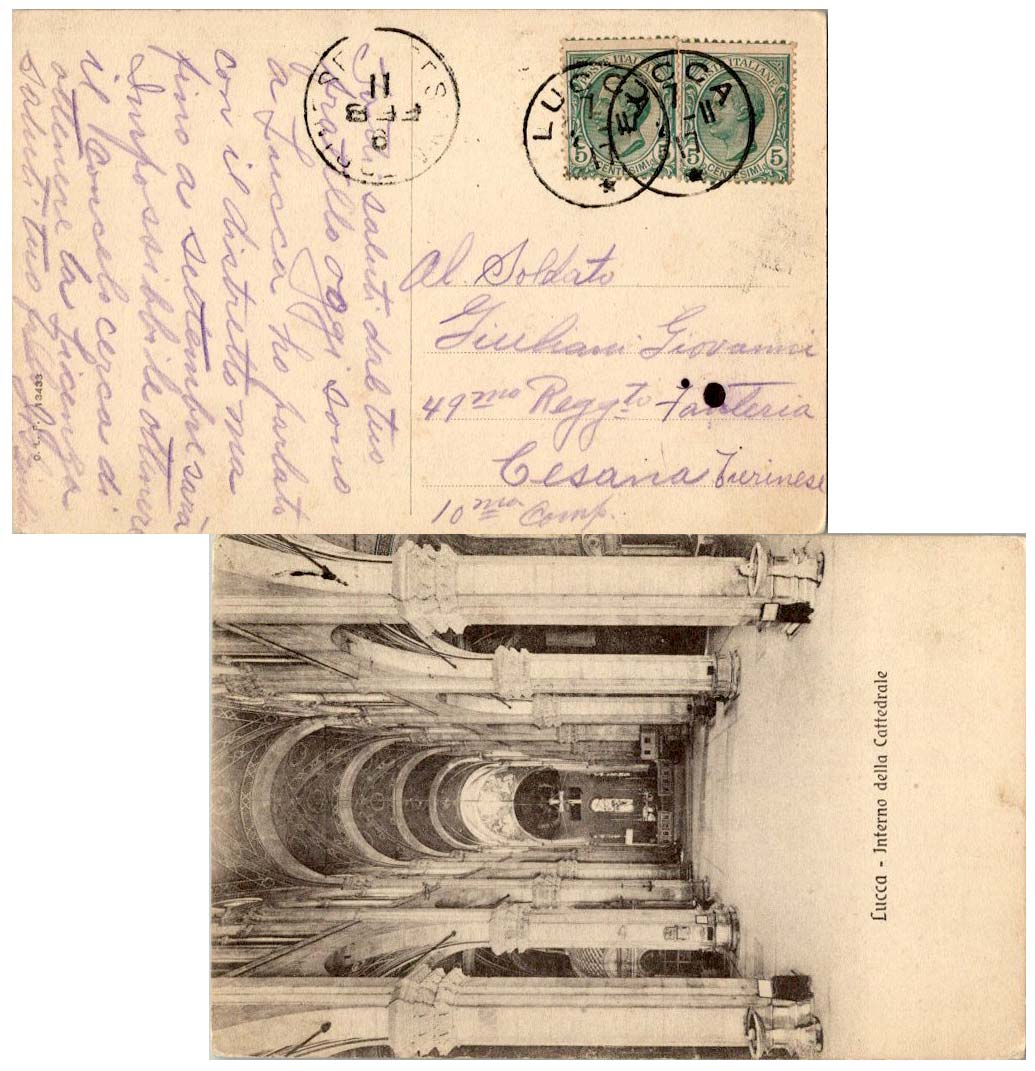 Infiniti saluti dal tuo
fratello oggi sono
a Lucca ho parlato
con il distretto ma
fino a settembre sarà
Impossibbile ottenere
il Concelo cerca di
ottenere la Licenza
Saluti tuo
13433
11
FEB
9
POSTE ITALIANE
5 CENTESIMI 5
POSTE ITALIANE
5 CENTESIMI 5
LUCCA
11
LUCCA
11
Al Soldato
Giuliani Giovanni
49mo Reggto Fanteria
Cesana Turinese
10me Comp.
Lucca - Interno della Cattedrale